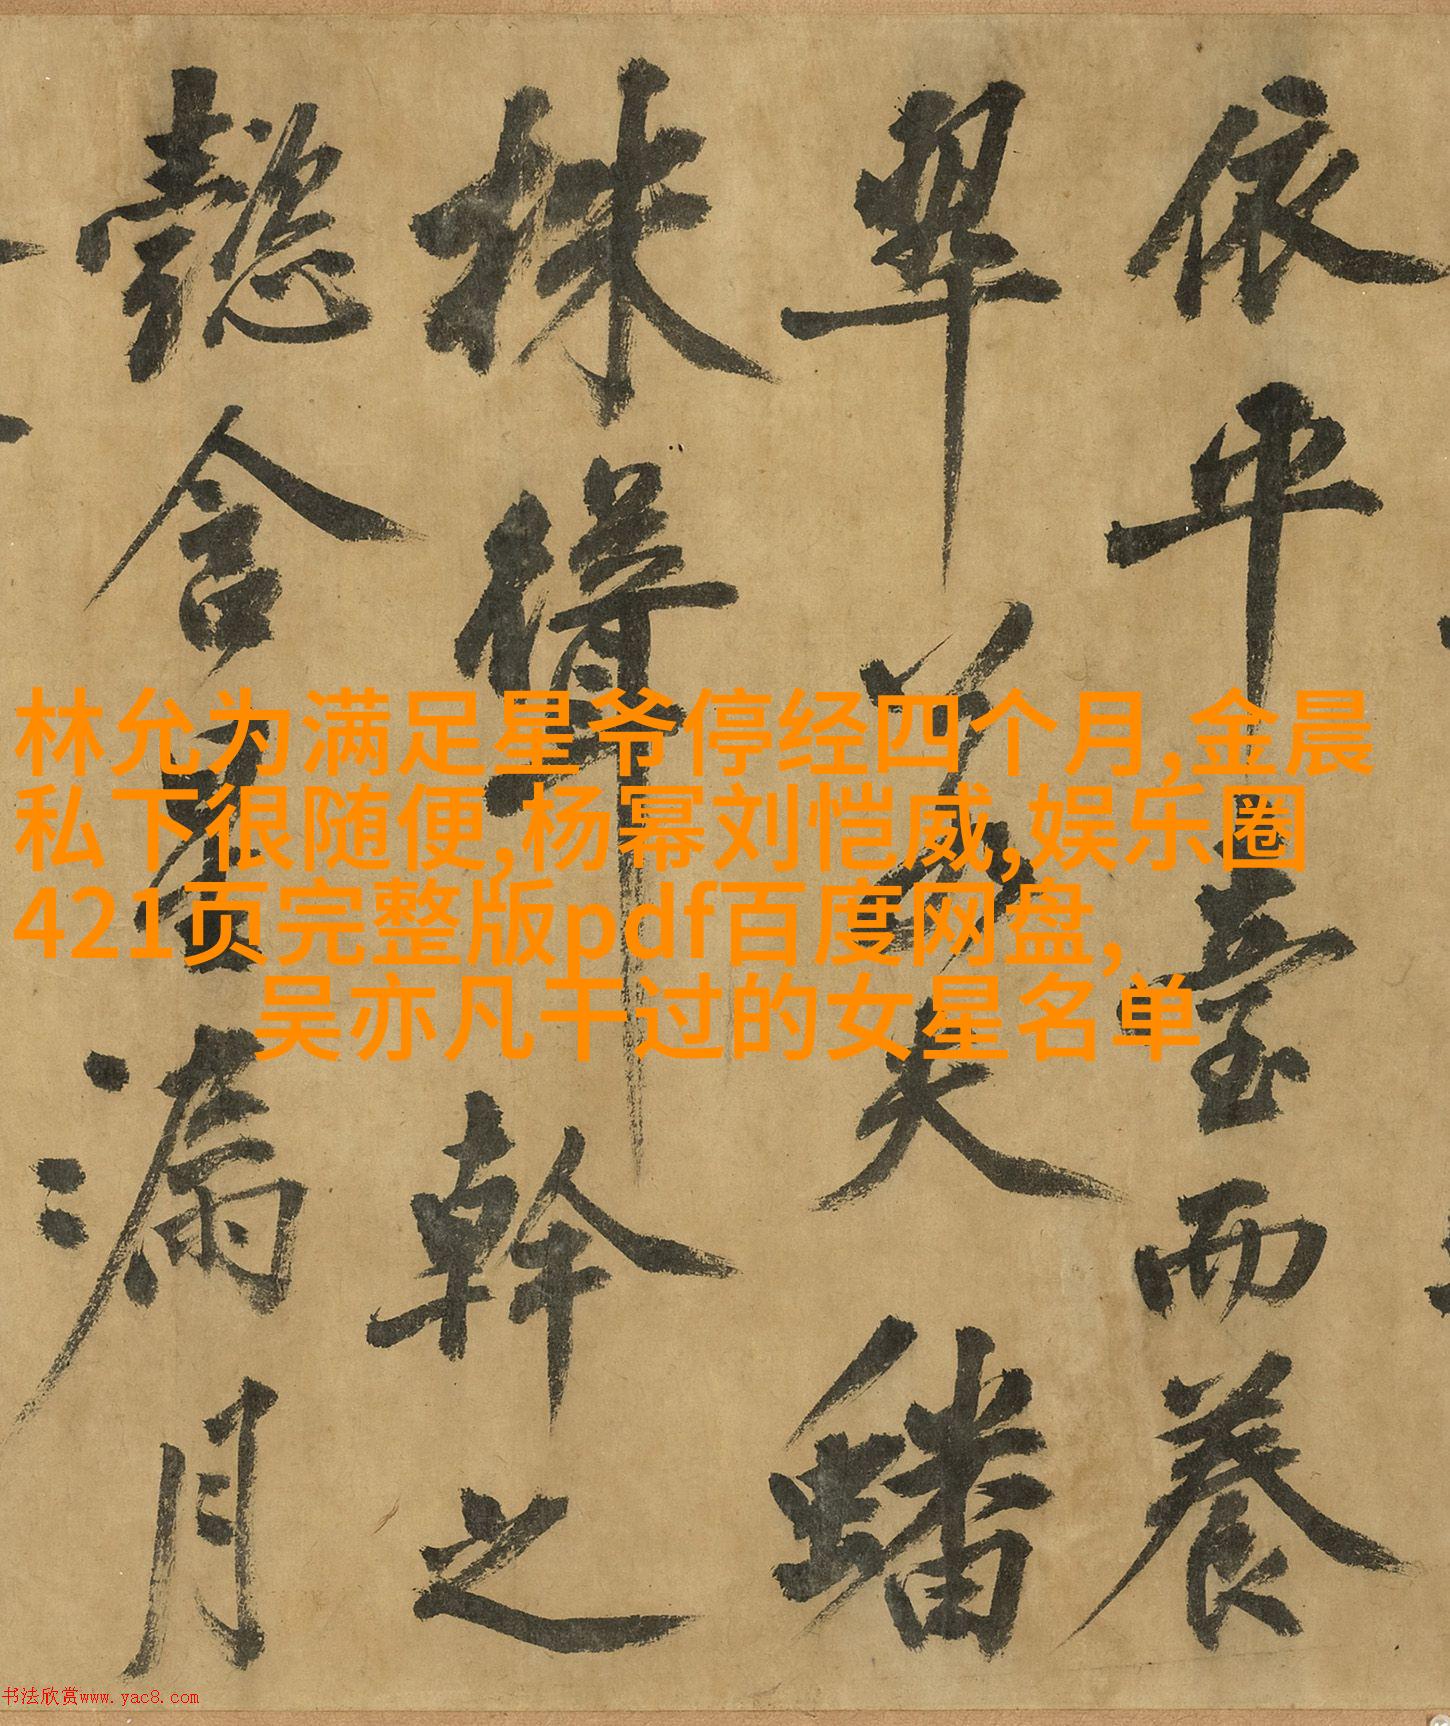 依平臺而養
翠若夫蟠
株幹之
懿含星漏月
林允为满足星爷停经四个月,金晨
私下很随便,杨幂刘恺威,娱乐圈
421页完整版pdf百度网盘,
吴亦凡干过的女星名单
书法欣赏www.yac8.com